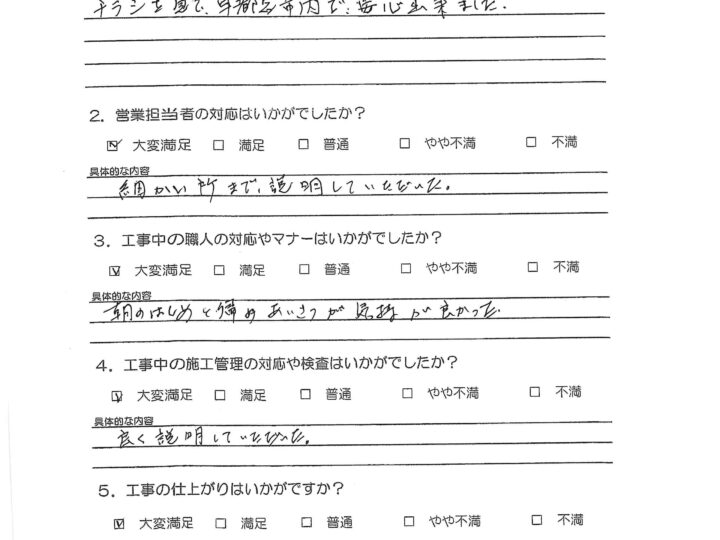 チラシを見て、宇都宮市内で、安心出来ました.
2. 営業担当者の対応はいかがでしたか?
☑ 大変満足 □ 満足 □ 普通 □ やや不満 □ 不満
具体的な内容
細かい所まで、説明していただいた。
3. 工事中の職人の対応やマナーはいかがでしたか?
☑ 大変満足 □ 満足 □ 普通 □ やや不満 □ 不満
具体的な内容
朝のはじめと帰りのあいさつが 気持が良かった.
4. 工事中の施工管理の対応や検査はいかがでしたか?
☑ 大変満足 □ 満足 □ 普通 □ やや不満 □ 不満
具体的な内容
良く説明していただいた。
5. 工事の仕上がりはいかがですか?
☑ 大変満足 □ 満足 □ 普通 □ やや不満 □ 不満